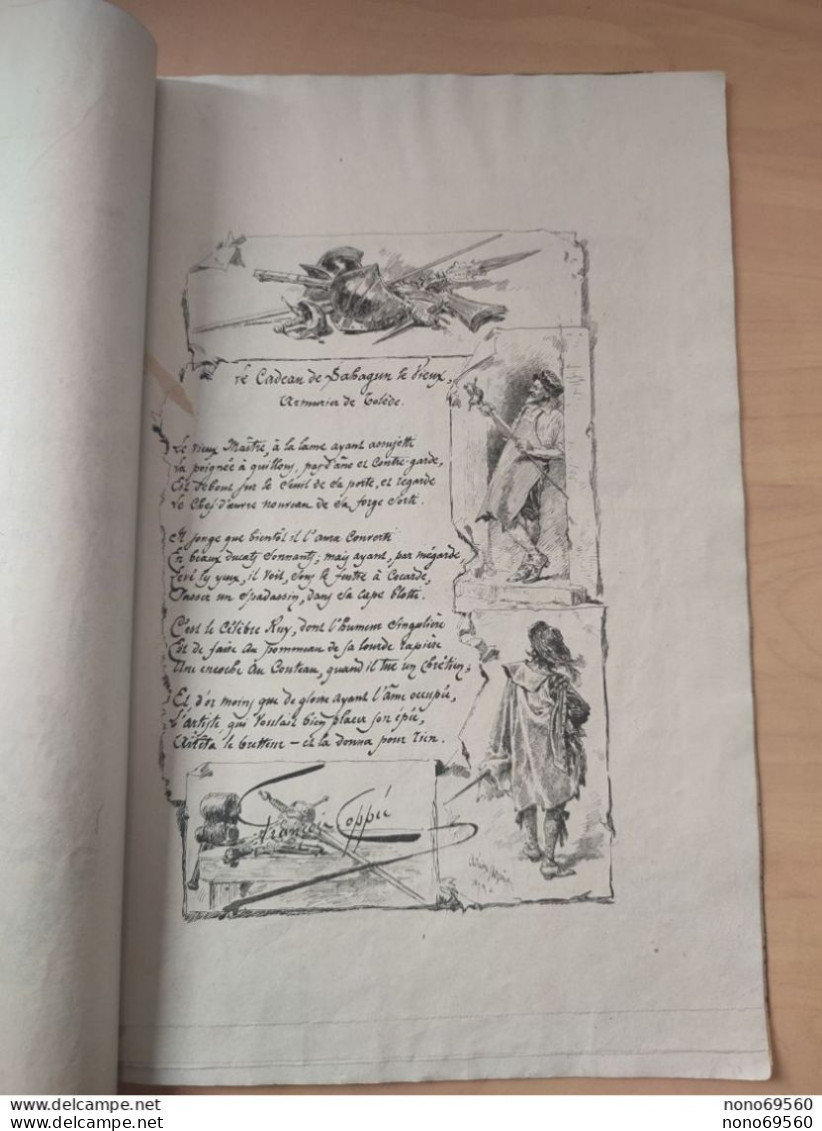 Le Cadeau de Sahagun le Vieux,
Armurier de Tolède.
Le vieux Maître, à la lame ayant assujetti
La poignée à quillons, pas d'âne et contre-garde,
Est debout sur le seuil de sa porte, et regarde
Le chef d'œuvre nouveau de sa forge sorti.
Il songe que bientôt il l'aura converti
En beaux ducats sonnants; mais ayant, par mégarde,
Levé les yeux, il voit, sous le feutre à cocarde,
Passer un spadassin, dans sa cape blotti.
C'est le célèbre Ruy, dont l'humeur singulière
Est de faire au pommeau de sa lourde rapière
Une encoche au couteau, quand il tue un chrétien;
Et, d'or moins que de gloire ayant l'âme occupée,
L'artiste, qui voulait bien placer son épée,
Arrêta le bretteur — et la donna pour rien.
François Coppée
www.delcampe.net
nono69560
www.delcampe.net
nono69560